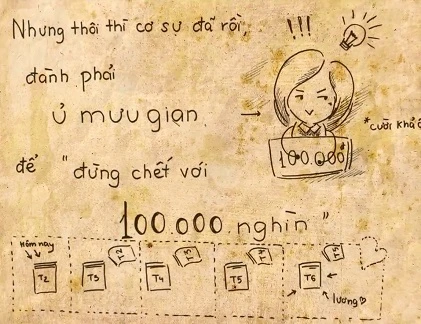 Nhưng thôi thì cơ sự đã rồi,
!!!
đành phải
ủ mưu gian
100.000đ
để "đừng chết với
100.000 nghìn"
Hôm nay
T2
T3
T2
T4
T3
T5
T4
T6
T5
lương